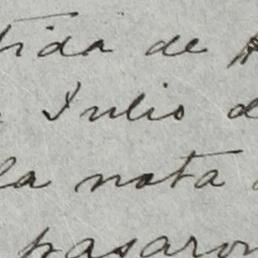 tida de
Julio d
la nota
pasaron